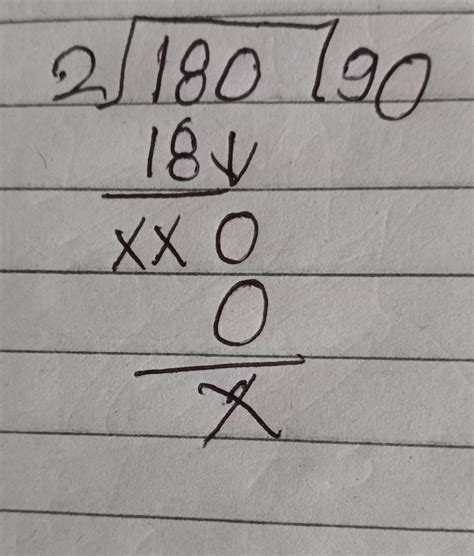 2 180 90
18↓
xx 0
0
x